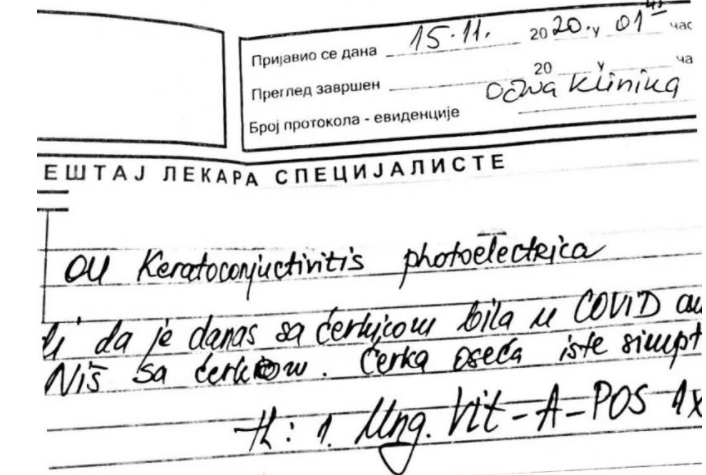 Пријавио се дана 15.11. 2020. у 01 45 час
Преглед завршен 20 у ча
Očna klinika
Број протокола - евиденције
ЕШТАЈ ЛЕКАРА СПЕЦИЈАЛИСТЕ
OU Keratoconjuctivitis photoelectrica
da je danas sa ćerkicom bila u COVID am
Niš sa ćerkicom. Ćerka oseća iste simpt
th: 1. Ung. Vit-A-POS 1x